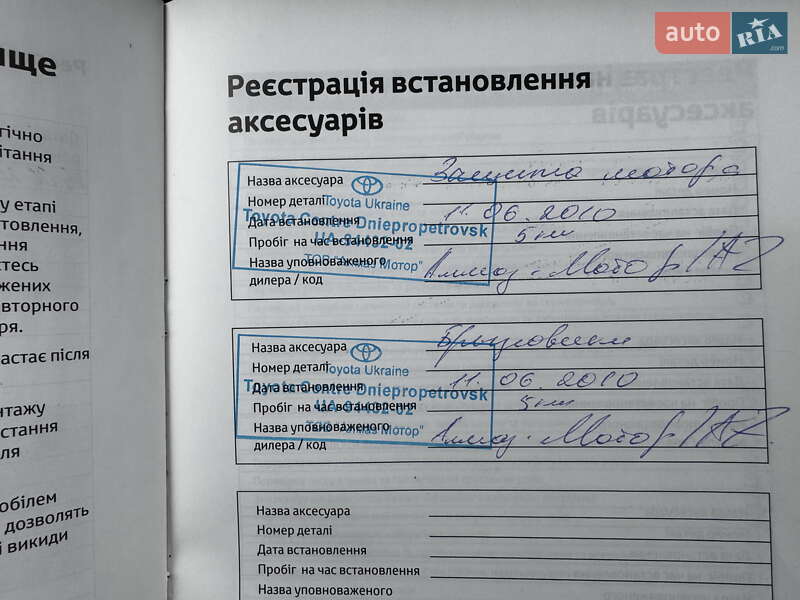 auto RIA.com
ище
гічно
ітання
у етапі
отовлення,
ення
стесь
жених
вторного
ря.
астає після
онтажу
остання
ля
обілем
дозволять
і викиди
Реєстрація встановлення
аксесуарів
Назва аксесуара Защита мотора
Номер деталі
Дата встановлення 11.06.2010
Пробіг на час встановлення 5 км
Назва уповноваженого
дилера / код Алмаз-Мотор/1А2
Toyota Ukraine
Toyota Centre Dniepropetrovsk
UA-91432-02
ТОВ "Алмаз Мотор"
Назва аксесуара Брызговики
Номер деталі
Дата встановлення 11.06.2010
Пробіг на час встановлення 5 км
Назва уповноваженого
дилера / код Алмаз-Мотор/1А2
Toyota Ukraine
Toyota Centre Dniepropetrovsk
ТОВ "Алмаз Мотор"
Назва аксесуара
Номер деталі
Дата встановлення
Пробіг на час встановлення
Назва уповноваженого